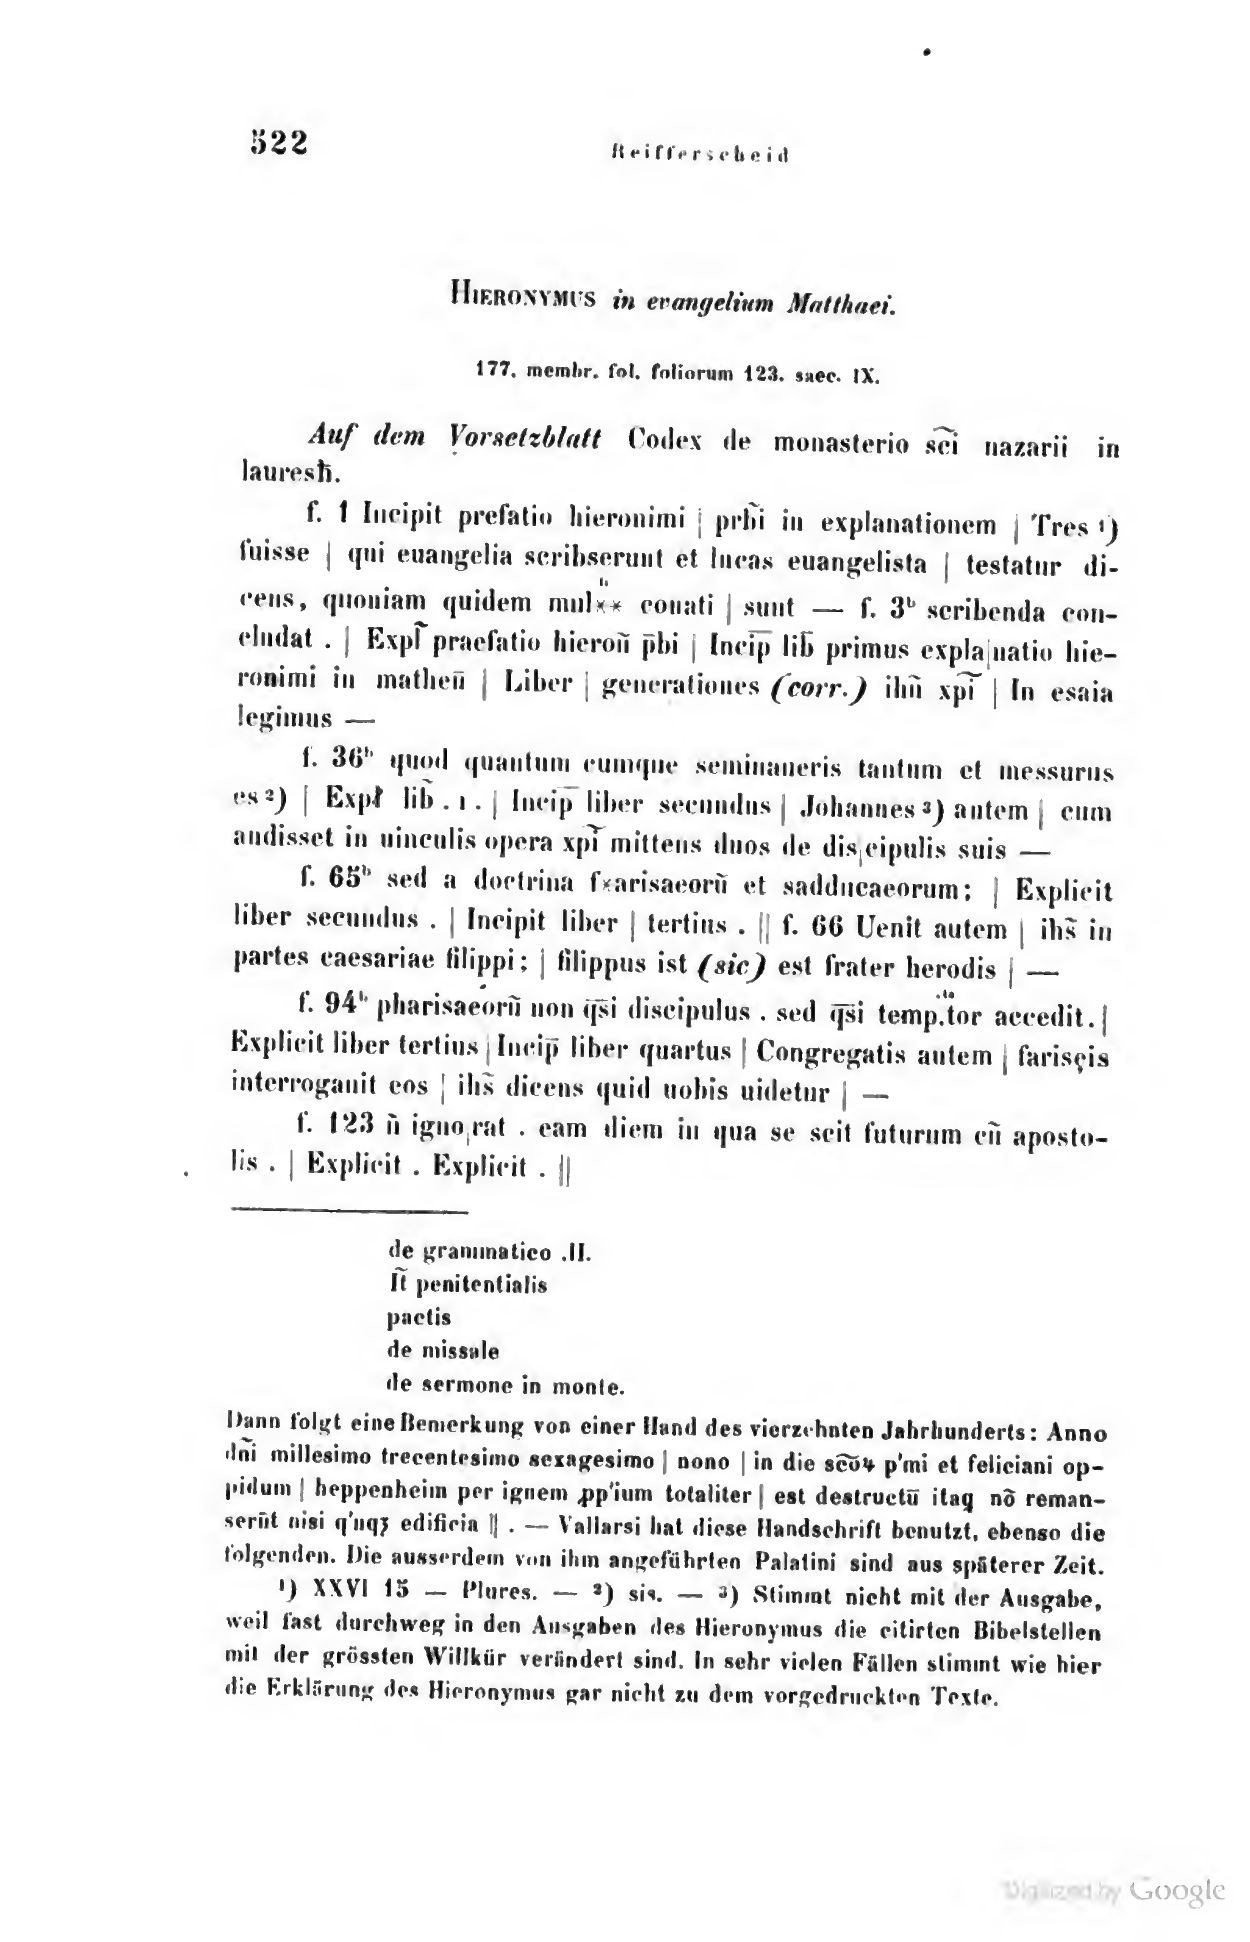 522
Reifferscheid
HIERONYMUS in evangelium Matthaei.
177. membr. fol. foliorum 123. saec. IX.
Auf dem Vorsetzblatt Codex de monasterio sc̃i nazarii in
lauresħ.
f. 1 Incipit prefatio hieronimi | prb̃i in explanationem | Tres ¹)
fuisse | qui euangelia scribserunt et lucas euangelista | testatur di-
cens, quoniam quidem mul** conati | sunt — f. 3ᵇ scribenda con-
cludat . | Expl̃ praefatio hieron̄ p̄bi | Incip̄ lib̄ primus expla|natio hie-
ronimi in matheū | Liber | generationes (corr.) ihū xpĩ | In esaia
legimus —
f. 36ᵇ quod quantum cumque seminaueris tantum et messurus
es ²) | Expł lib̄ . ı . | Incip̄ liber secundus | Johannes ³) autem | cum
audisset in uinculis opera xpĩ mittens duos de dis|cipulis suis —
f. 65ᵇ sed a doctrina f*arisaeorū et sadducaeorum; | Explicit
liber secundus . | Incipit liber | tertius . || f. 66 Uenit autem | ihs̄ in
partes caesariae filippi; | filippus ist (sic) est frater herodis | —
f. 94ᵇ pharisaeorū non q̄si discipulus . sed q̄si temp.tor accedit. |
Explicit liber tertius | Incip̄ liber quartus | Congregatis autem | farisęis
interrogauit eos | ihs̄ dicens quid uobis uidetur | —
f. 123 n̄ igno|rat . eam diem in qua se scit futurum cū aposto-
lis . | Explicit . Explicit . ||
de grammatico .II.
It̃ penitentialis
pactis
de missale
de sermone in monte.
Dann folgt eine Bemerkung von einer Hand des vierzehnten Jahrhunderts: Anno
dñi millesimo trecentesimo sexagesimo | nono | in die sc̄oꝝ p'mi et feliciani op-
pidum | heppenheim per ignem ꝓp'ium totaliter | est destructū itaq nō reman-
serūt nisi q'nqꝫ edificia || . — Vallarsi hat diese Handschrift benutzt, ebenso die
folgenden. Die ausserdem von ihm angeführten Palatini sind aus späterer Zeit.
¹) XXVI 15 — Plures. — ²) sis. — ³) Stimmt nicht mit der Ausgabe,
weil fast durchweg in den Ausgaben des Hieronymus die citirten Bibelstellen
mit der grössten Willkür verändert sind. In sehr vielen Fällen stimmt wie hier
die Erklärung des Hieronymus gar nicht zu dem vorgedruckten Texte.
Digitized by Google